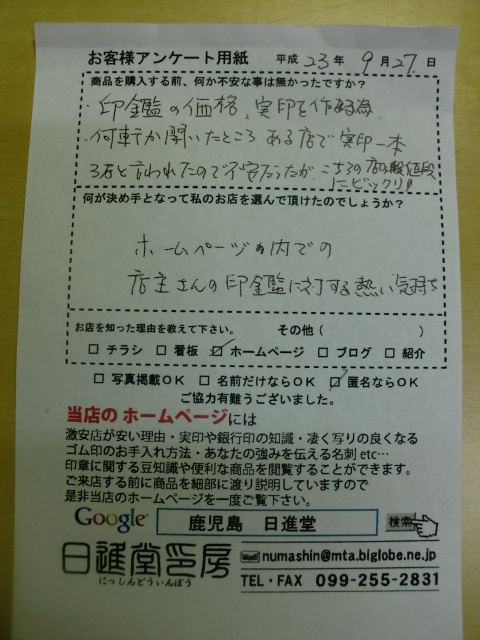 お客様アンケート用紙 平成 23年 9月27日
商品を購入する前、何か不安な事は無かったですか？
・印鑑の価格、実印を作る為、
何軒か聞いたところ ある店で実印一本
3万と言われたので不安だったが、こちらの店の値段
にビックリ!!
何が決め手となって私のお店を選んで頂けたのでしょうか？
ホームページの内での
店主さんの印鑑に対する熱い気持ち
お店を知った理由を教えて下さい。 その他（ ）
□ チラシ □ 看板 ☑ ホームページ □ ブログ □ 紹介
□ 写真掲載ＯＫ □ 名前だけならＯＫ ☑ 匿名ならＯＫ
ご協力有難うございました。
当店の ホームページには
激安店が安い理由・実印や銀行印の知識・凄く写りの良くなる
ゴム印のお手入れ方法・あなたの強みを伝える名刺 etc…
印章に関する豆知識や便利な商品を閲覧することができます。
ご来店する前に商品を細部に渡り説明していますので
是非当店のホームページを一度ご覧下さい。
Google 鹿児島 日進堂 検索
日進堂印房
にっしんどういんぼう
numashin@mta.biglobe.ne.jp
TEL・FAX 099-255-2831